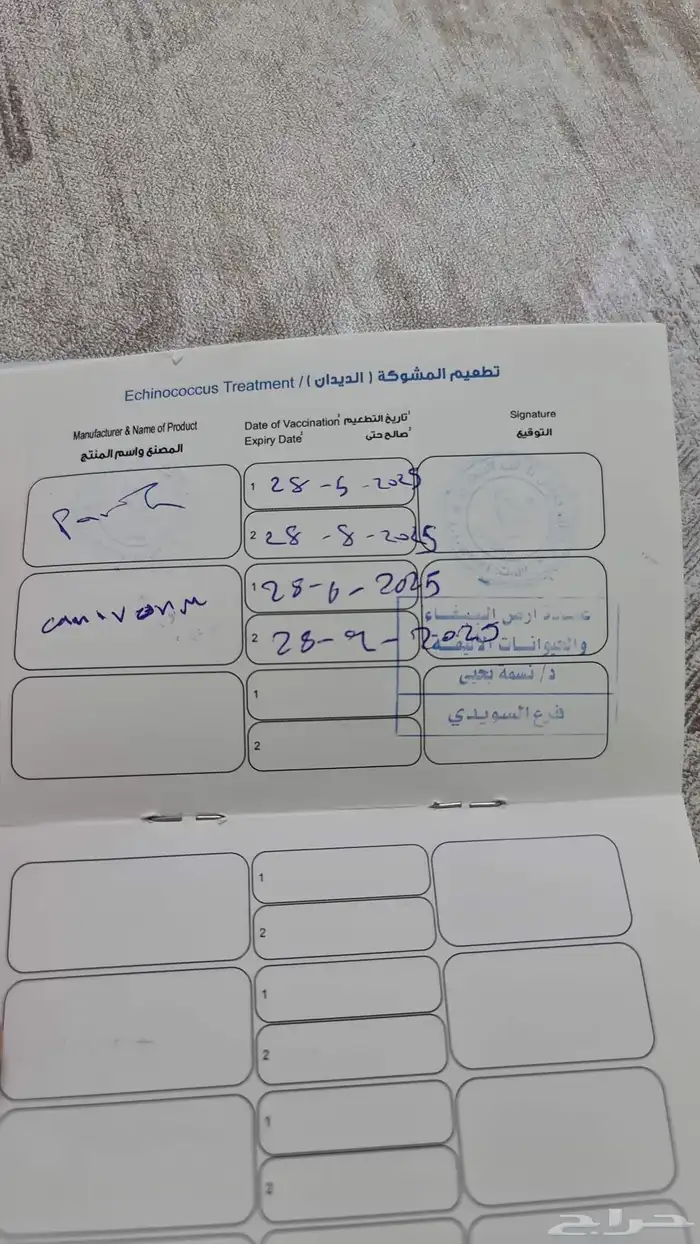 Echinococcus Treatment / تطعيم المشوكة ( الديدان )
Manufacturer & Name of Product
المصنع واسم المنتج
Date of Vaccination¹ تاريخ التطعيم¹
Expiry Date² صالح حتى²
Signature
التوقيع
1 28-5-2025
2 28-8-2025
1 28-6-2025
2 28-9-2025
أرض
والحيوانات الأليفة
د/ نسمة يحيى
فرع السويدي
1
2
1
2
1
2
1
2
حراج